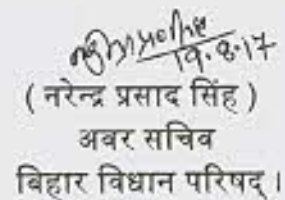 19.8.17
( नरेन्द्र प्रसाद सिंह )
अबर सचिव
बिहार विधान परिषद् ।